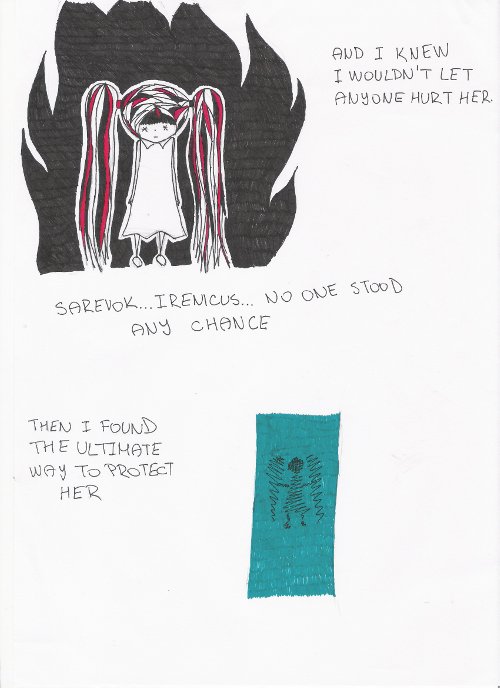 AND I KNEW
I WOULDN'T LET
ANYONE HURT HER.
SAREVOK...IRENICUS... NO ONE STOOD
ANY CHANCE
THEN I FOUND
THE ULTIMATE
WAY TO PROTECT
HER